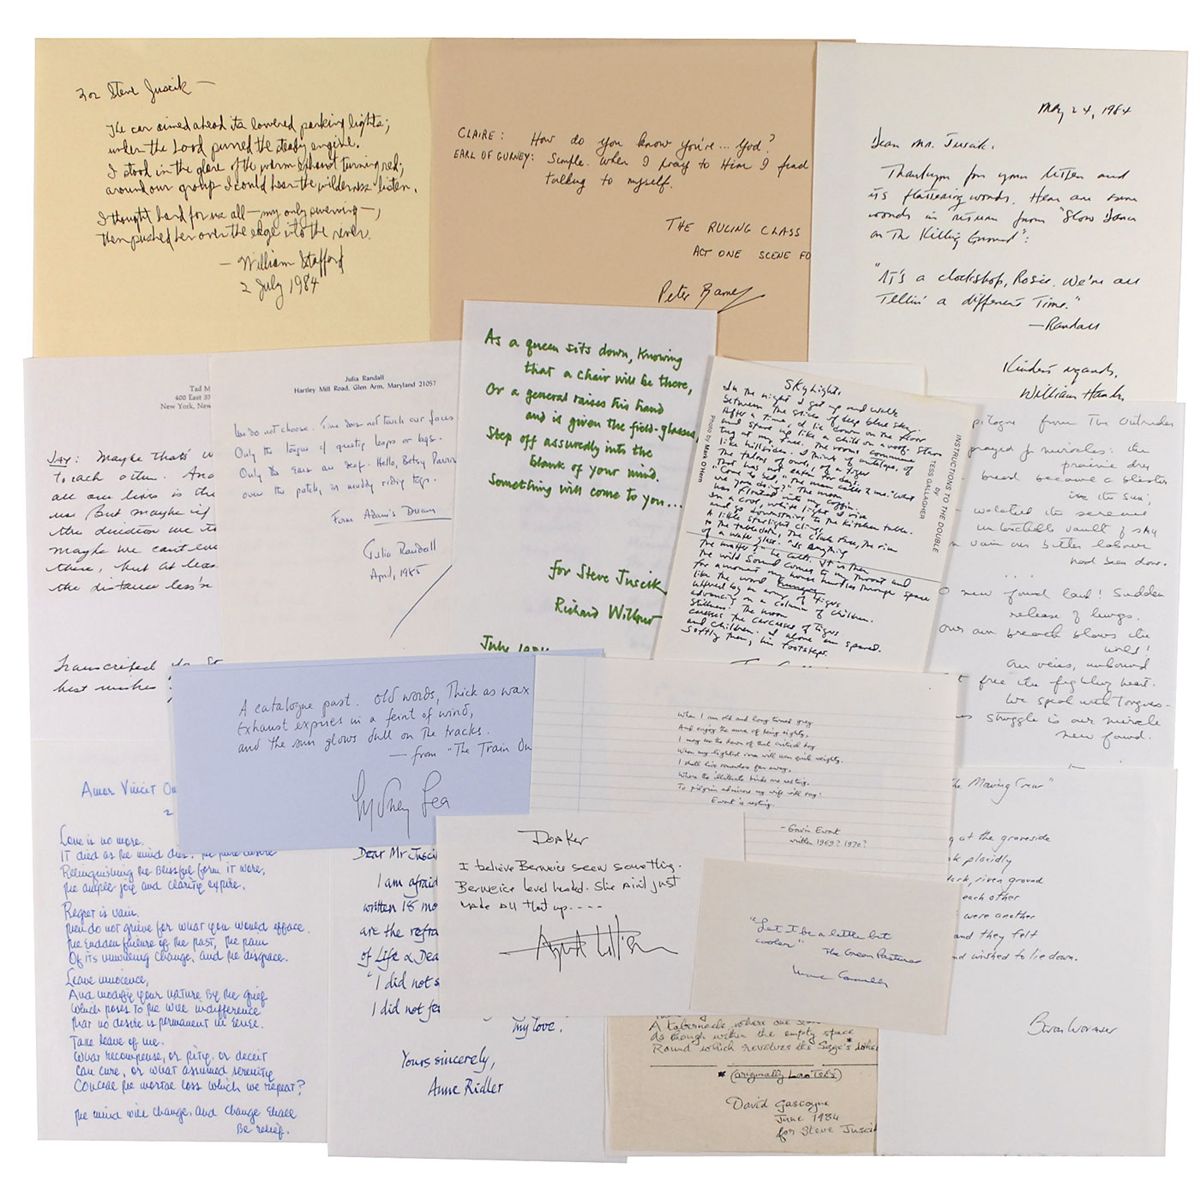 For Steve Juscik —
The car aimed ahead its lowered parking lights;
under the hood purred the steady engine.
I stood in the glare of the warm exhaust turning red;
around our group I could hear the wilderness listen.
I thought hard for us all—my only swerving—,
then pushed her over the edge into the river.
— William Stafford
2 July 1984
CLAIRE: How do you know you're... God?
EARL OF GURNEY: Simple. When I pray to Him I find
talking to myself.
THE RULING CLASS
ACT ONE SCENE FO
Peter Barnes
May 24, 1984
Dear Mr. Juscik.
Thank you for your letter and
its flattering words. Here are some
words in return from "Slow Dance
on The Killing Ground":
"It's a clockshop, Rosie. We're all
Tellin' a different Time."
—Randall
Kindest regards,
William Hanley
Tad M
400 East 5
New York, New
JAY: Maybe that's w
to each other. And
all our lives is the
us. But maybe if
the direction we to
maybe we can't eve
there, but at leas
the distance less'n
Transcribed for St
best wishes
Julia Randall
Hartley Mill Road, Glen Arm, Maryland 21057
We do not choose. Time does not touch our faces
Only the
Only the ears are deaf. Hello, Betsy
over the patch, in muddy riding togs.
From Adam's Dream
Julia Randall
April, 1985
As a queen sits down, knowing
that a chair will be there,
Or a general raises his hand
and is given the field-glasses,
Step off assuredly into the
blank of your mind.
Something will come to you...
for Steve Juscik
Richard Wilbur
July 1984
SkyLights
In the night I get up and walk
between the slices of deep blue sky.
After a time, I lie down on the floor
and stare up like a child on a roof. Stars
tug at my face.
like hillsides. I think by
the talons of owls, of a tiger
that has not eaten for days.
"Come to bed," the man calls to me. "What
are you doing?" The moon
has floated into my coffin.
in a cool white light I rise
and go downstairs to the kitchen table.
A little starlight clings
to the tabledom, the clock face, the rim
of a water glass. "Is anything
the matter?" he calls. It is then
the wild sound comes to my throat and
for a moment my house hurtles through space
like the word
uttered by an army of tigers
advancing on a column of children.
Stillness. The moon
caresses the carcasses of tigers
and children. I alone am spared.
Softly then, in footsteps
Photo by Mark O'Hern
INSTRUCTIONS TO THE DOUBLE
BY
TESS GALLAGHER
from The Outrider
prayed for miracles: the
prairie dry
bread become a blister
in its sun;
the serene
vault of sky
vain our bitter labour
had been done.
. . .
new found land! Sudden
release of lungs.
our own breath blows the
world!
Our veins, unbound
free the fighting heart.
We speak with tongues–
struggle is our miracle
new found.
A catalogue past. Old words, thick as wax
Exhaust expires in a feint of wind,
and the sun glows dull on the tracks.
— from "The Train Ou
Sydney Lea
When I am old and long turned grey
And enjoy the aura of being eighty,
I may see the dawn of that
When my slightest
I shall
Where the illiterate birds are nesting.
To pilgrim admirers my wife will say:
Ewart is resting.
– Gavin Ewart
written 1969? 1970?
Amor Vincit Om
Love is no more.
It died as the mind dies: the pure desire
Relinquishing the blissful form it wore,
The ample joy and clarity expire.
Regret is vain.
Then do not grieve for what you would efface,
The sudden failure of the past, the pain
Of its unwilling change, and the disgrace.
Leave innocence,
And modify your nature by the grief
Which poses to the will indifference
That no desire is permanent in sense.
Take leave of me.
What recompense, or pity, or deceit
Can cure, or what assumed serenity
Conceal the mortal loss which we repeat?
The mind will change, and change shall
Be relief.
Dear Mr Juscik
I am afraid
written 18 mo
are the refra
of Life & Dea
"I did not s
I did not fe
my love.
Yours sincerely,
Anne Ridler
Donker
I believe Berneice seen something.
Berneice level headed. She ain't just
made all that up. . . .
August Wilson
"Let I be a little bit
cooler"
The Green Pastures
Marc Connelly
A tabernacle where one
As though within the empty space
Round which revolves the Sage's* wheel
* (originally Lao Tse's)
David Gascoyne
June 1984
for Steve Juscik
"The Moving Crew"
at the graveside
placidly
dark, riven ground
each other
were another
and they felt
and wished to lie down.
Baron Wormser